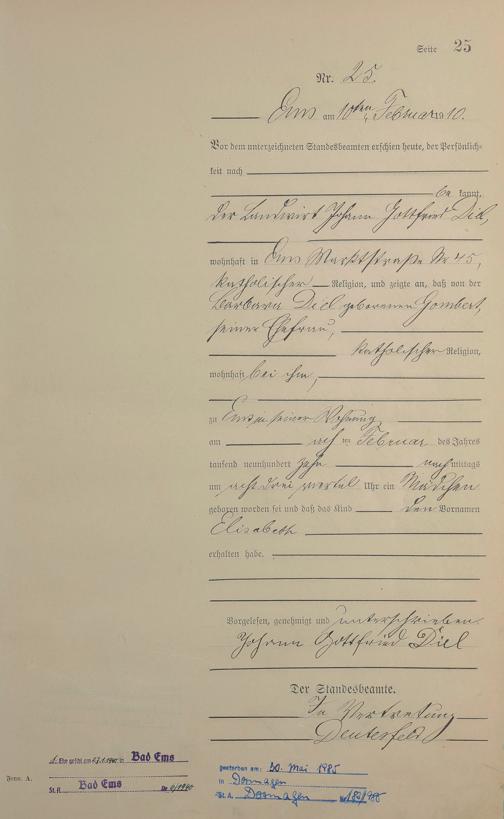 Seite 25
Nr. 25.
Ems am 10ten Februar 1910.
Vor dem unterzeichneten Standesbeamten erschien heute, der Persönlich-
keit nach
be kannt,
der Landwirt Johann Gottfried Diel,
wohnhaft in Ems Marktstraße Nr 45,
katholischer Religion, und zeigte an, daß von der
Barbara Diel geborenen Gombert,
seiner Ehefrau,
katholischer Religion,
wohnhaft bei ihm,
zu Ems in seiner Wohnung
am acht ten Februar des Jahres
tausend neunhundert zehn nachmittags
um acht drei viertel Uhr ein Mädchen
geboren worden sei und daß das Kind den Vornamen
Elisabeth
erhalten habe.
Vorgelesen, genehmigt und unterschrieben
Johann Gottfried Diel
Der Standesbeamte.
In Vertretung
Deuterfeld
1. Ehe geschl. am in Bad Ems
St.A. Bad Ems Nr.
Form. A.
gestorben am: 30. Mai 1985
in Dormagen
St. A. Dormagen